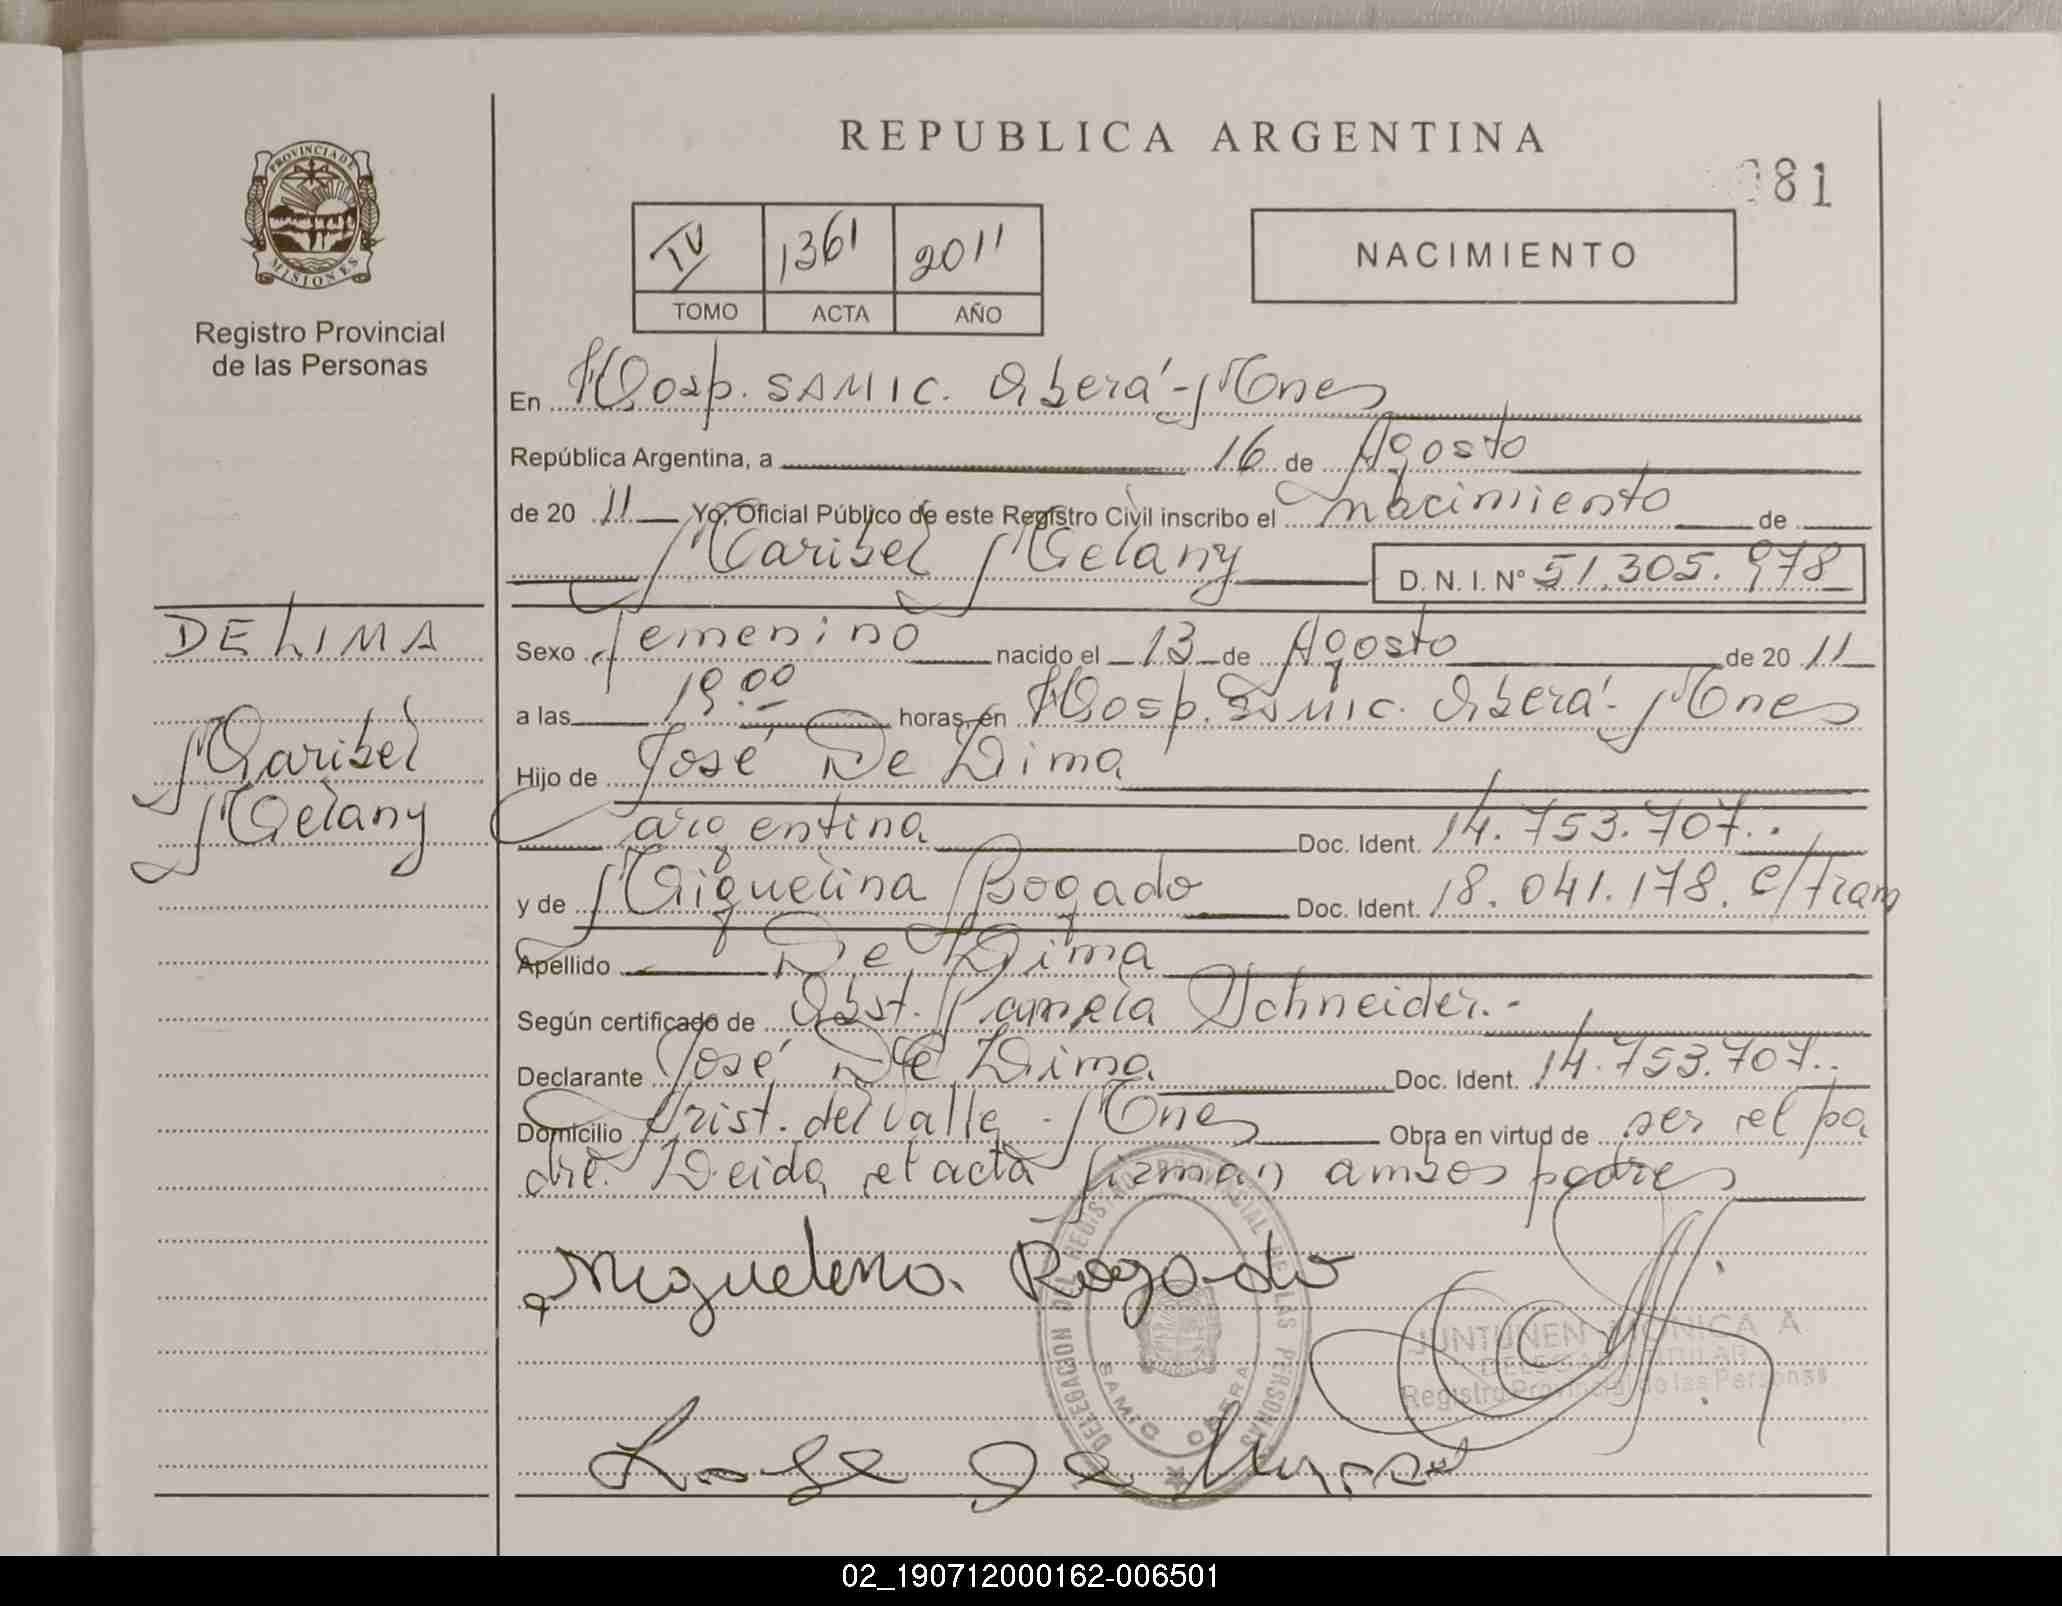 REPUBLICA ARGENTINA
081
PROVINCIA DE MISIONES
Registro Provincial
de las Personas
IV 1361 2011
TOMO ACTA AÑO
NACIMIENTO
En Hosp. SAMIC. Oberá - Mnes
República Argentina, a 16 de Agosto
de 20 11 Yo, Oficial Público de este Registro Civil inscribo el nacimiento de
Maribel Melany D. N. I. N° 51.305.978
DE LIMA
Maribel
Melany
Sexo femenino nacido el 13 de Agosto de 20 11
a las 19.00 horas, en Hosp. SAMIC. Oberá - Mnes
Hijo de José De Lima
argentina Doc. Ident. 14.753.707..
y de Miguelina Bogado Doc. Ident. 18.041.178. e/tram
Apellido De Lima
Según certificado de Obst. Pamela Schneider.-
Declarante José De Lima Doc. Ident. 14.753.707..
Domicilio Arist. del Valle - Mnes Obra en virtud de ser el pa
dre. Leida el acta firman ambos padres
Miguelina Bogado
DELEGACION DEL REGISTRO PROVINCIAL DE LAS PERSONAS
SAMIC OBERA
JUNTUNEN MONICA A
DELEGADA TITULAR
Registro Provincial de las Personas
Jose de
02_190712000162-006501